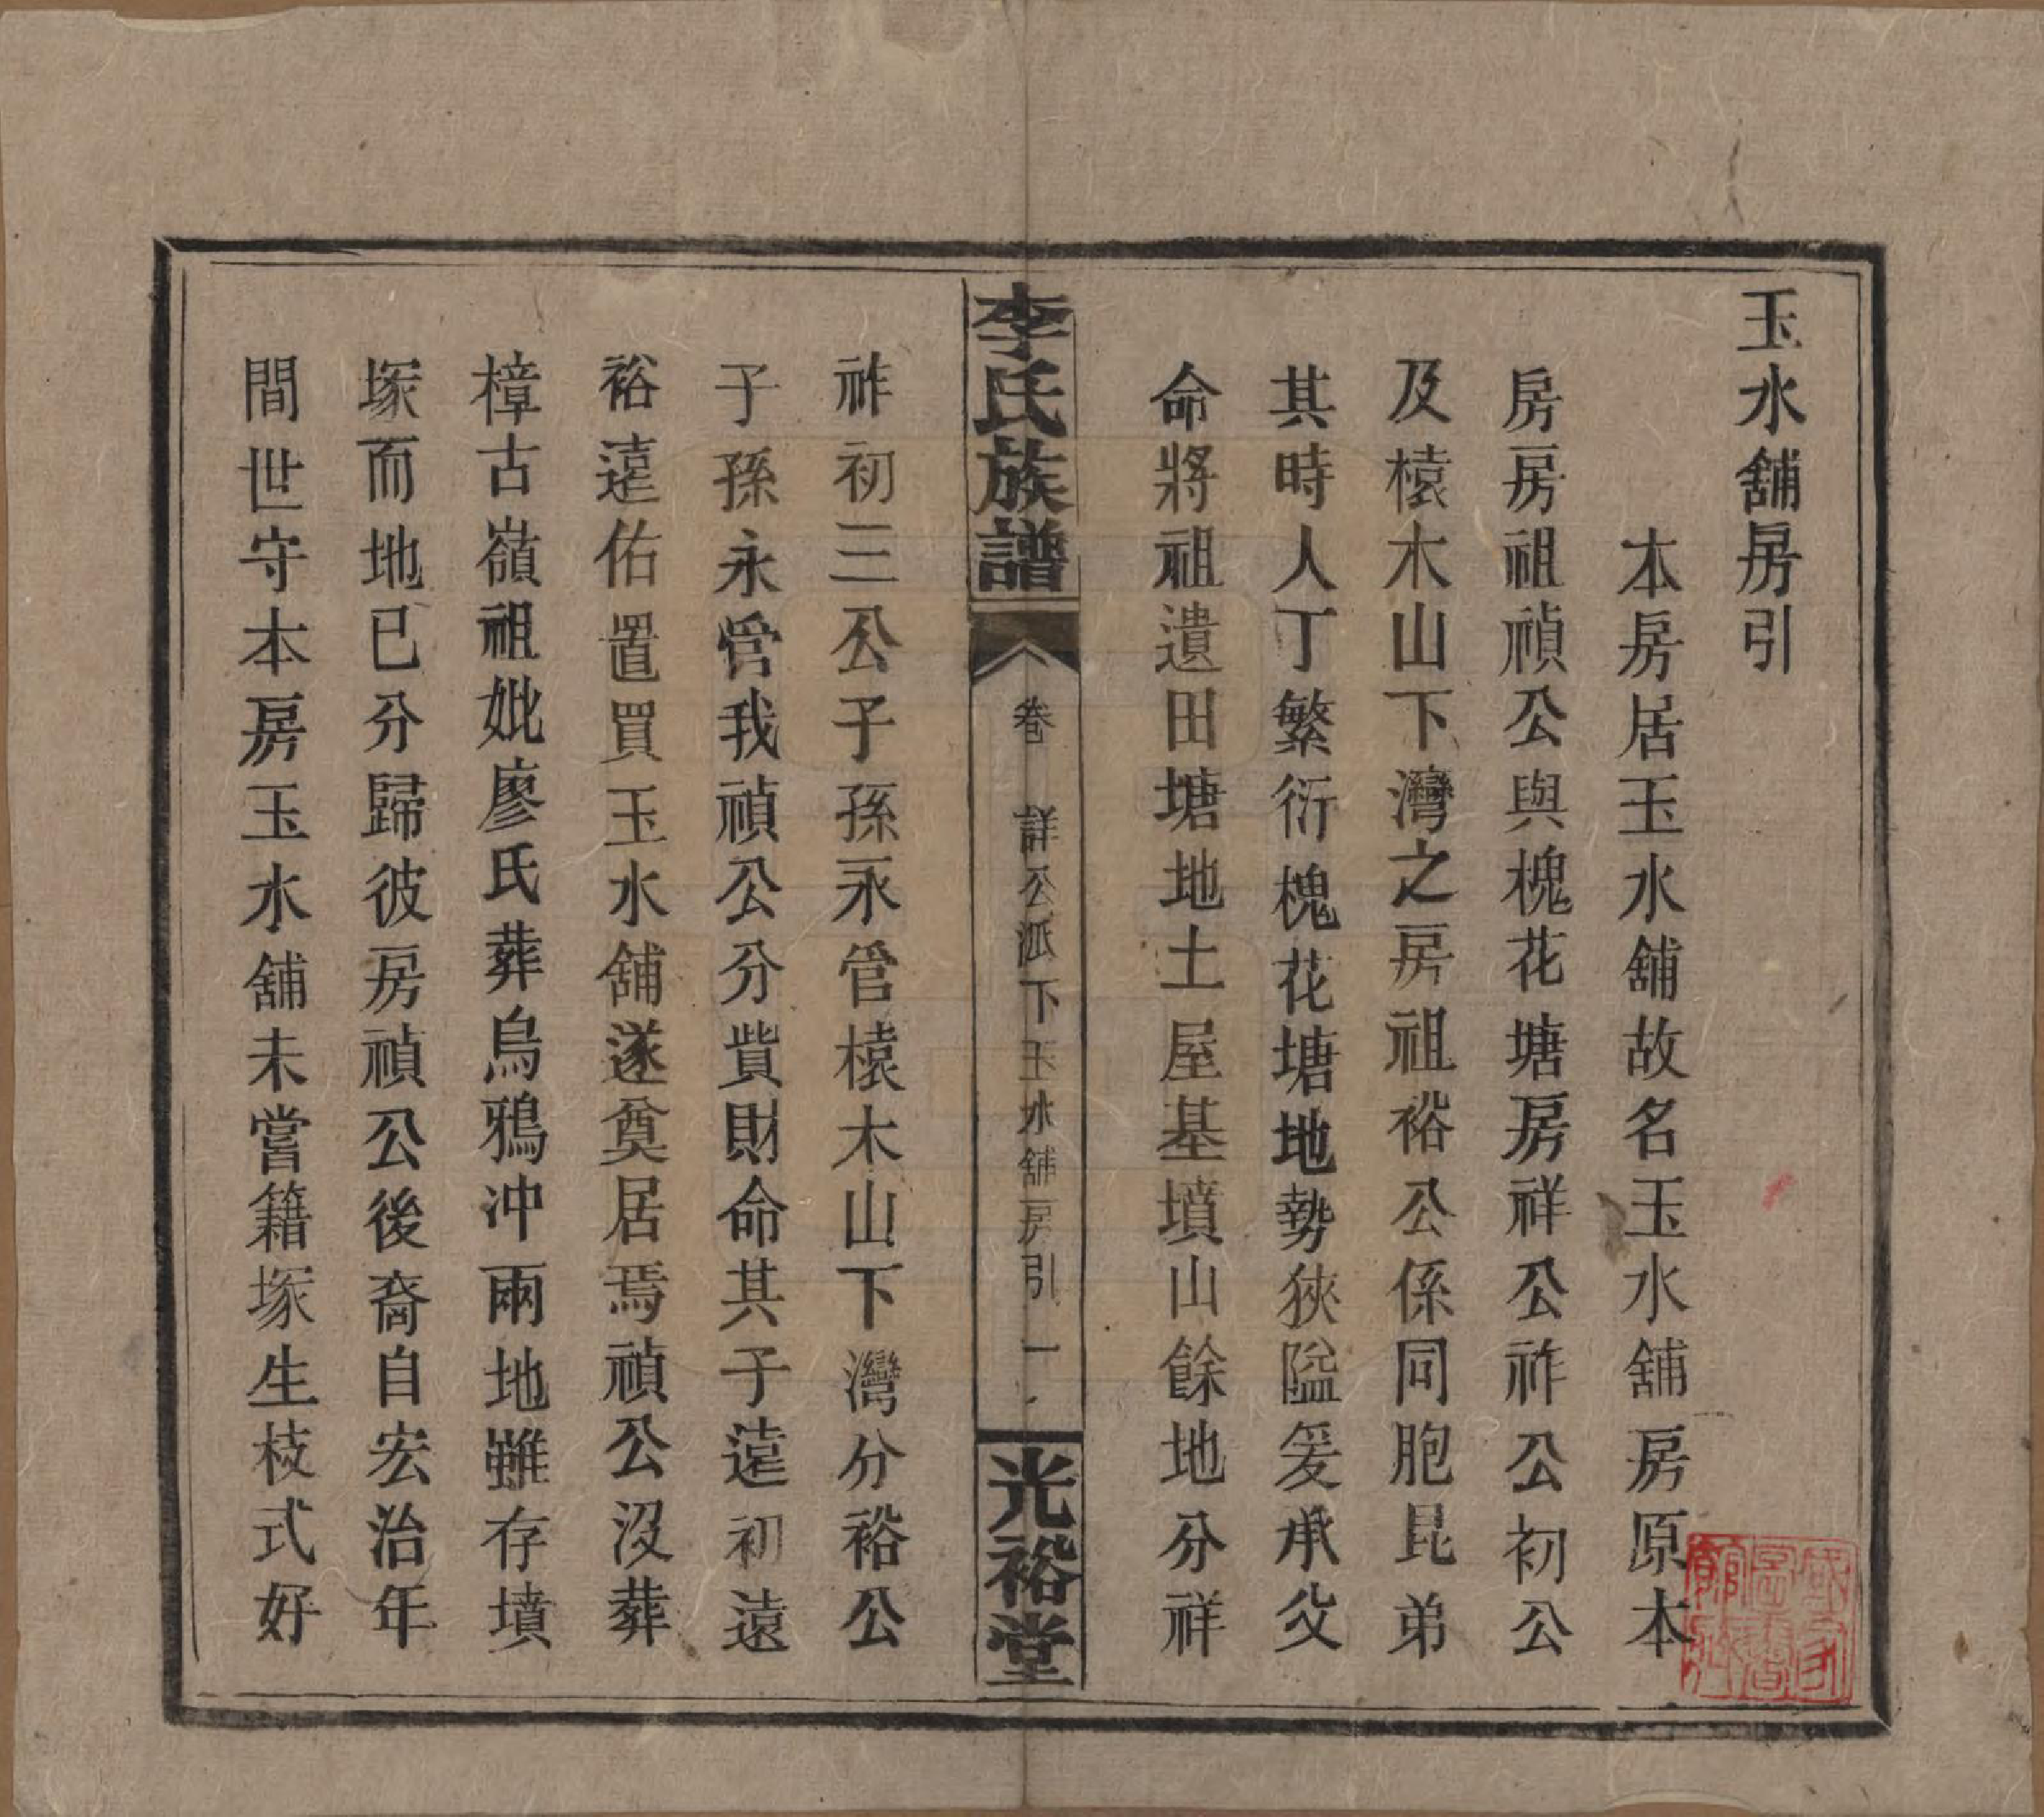 玉水舖房引
本房居玉水舖故名玉水舖房原本
房房祖禎公與槐花塘房祥公祚公初公
及榬木山下灣之房祖裕公係同胞昆弟
其時人丁繁衍槐花塘地勢狹隘爰承父
命將祖遺田塘地土屋基墳山餘地分祥
李氏族譜
卷 詳公派下玉水舖房引 一
光裕堂
祚初三公子孫永管榬木山下灣分裕公
子孫永管我禎公分貲財命其子遠初遠
裕遠佑置買玉水舖遂奠居焉禎公沒葬
樟古嶺祖妣廖氏葬烏鴉冲兩地雖存墳
塚而地已分歸彼房禎公後裔自宏治年
間世守本房玉水舖未嘗籍塚生枝式好
國家圖書館藏